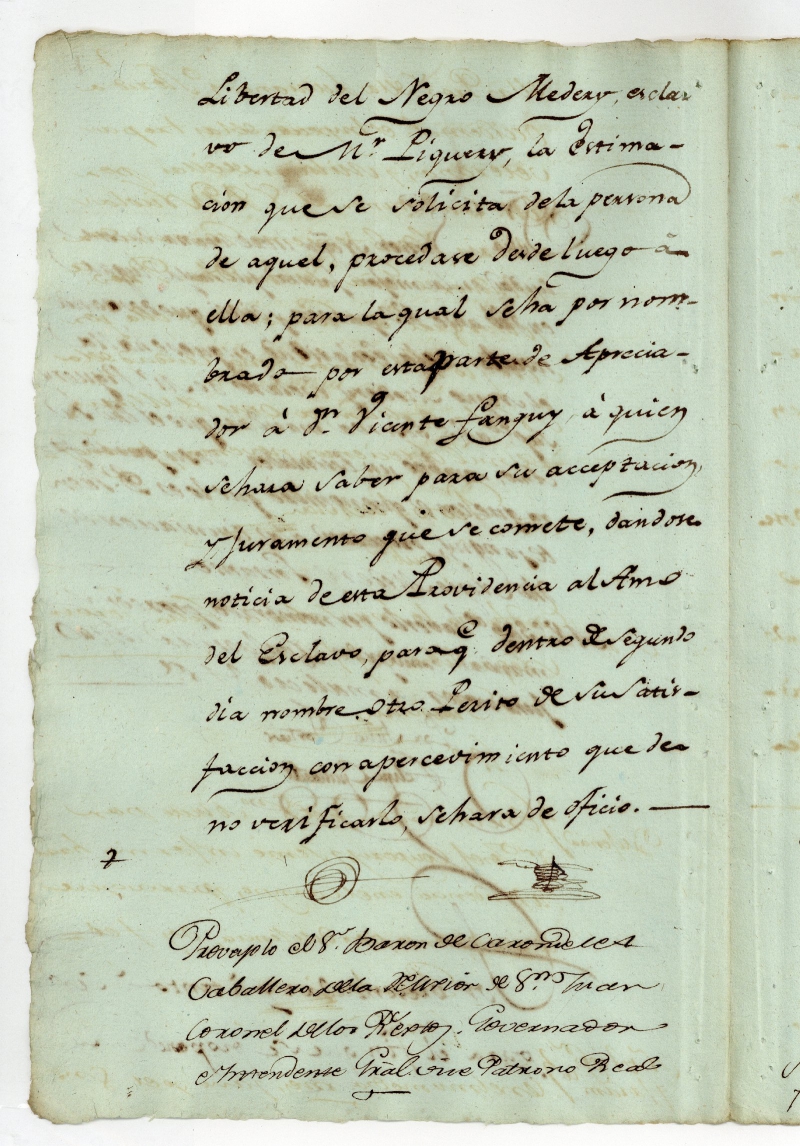 Libertad del Negro Medery, escla-
vo de Mr. Piquery, la estima-
cion que se solicita dela persona
de aquel, procedase desde luego â
ella; para la qual seha por nom-
brado por esta parte de Aprecia-
dor â Dn. Vicente Fanguy, â quien
sehara saber para su acceptacion,
y Juramento que se comete, dandose
noticia de esta Providencia al Amo
del Esclavo, paraq.e dentro de segundo
dia nombre otro Perito de su satis-
faccion con apercevimiento que de
no verificarlo, sehara de oficio.
Proveyolo el Sr. Baron de Carondelet
Caballero dela Religion de Sn. Juan
Coronel delos Rs. Extos. Governador
e Yntendente Gral. vice Patrono Real